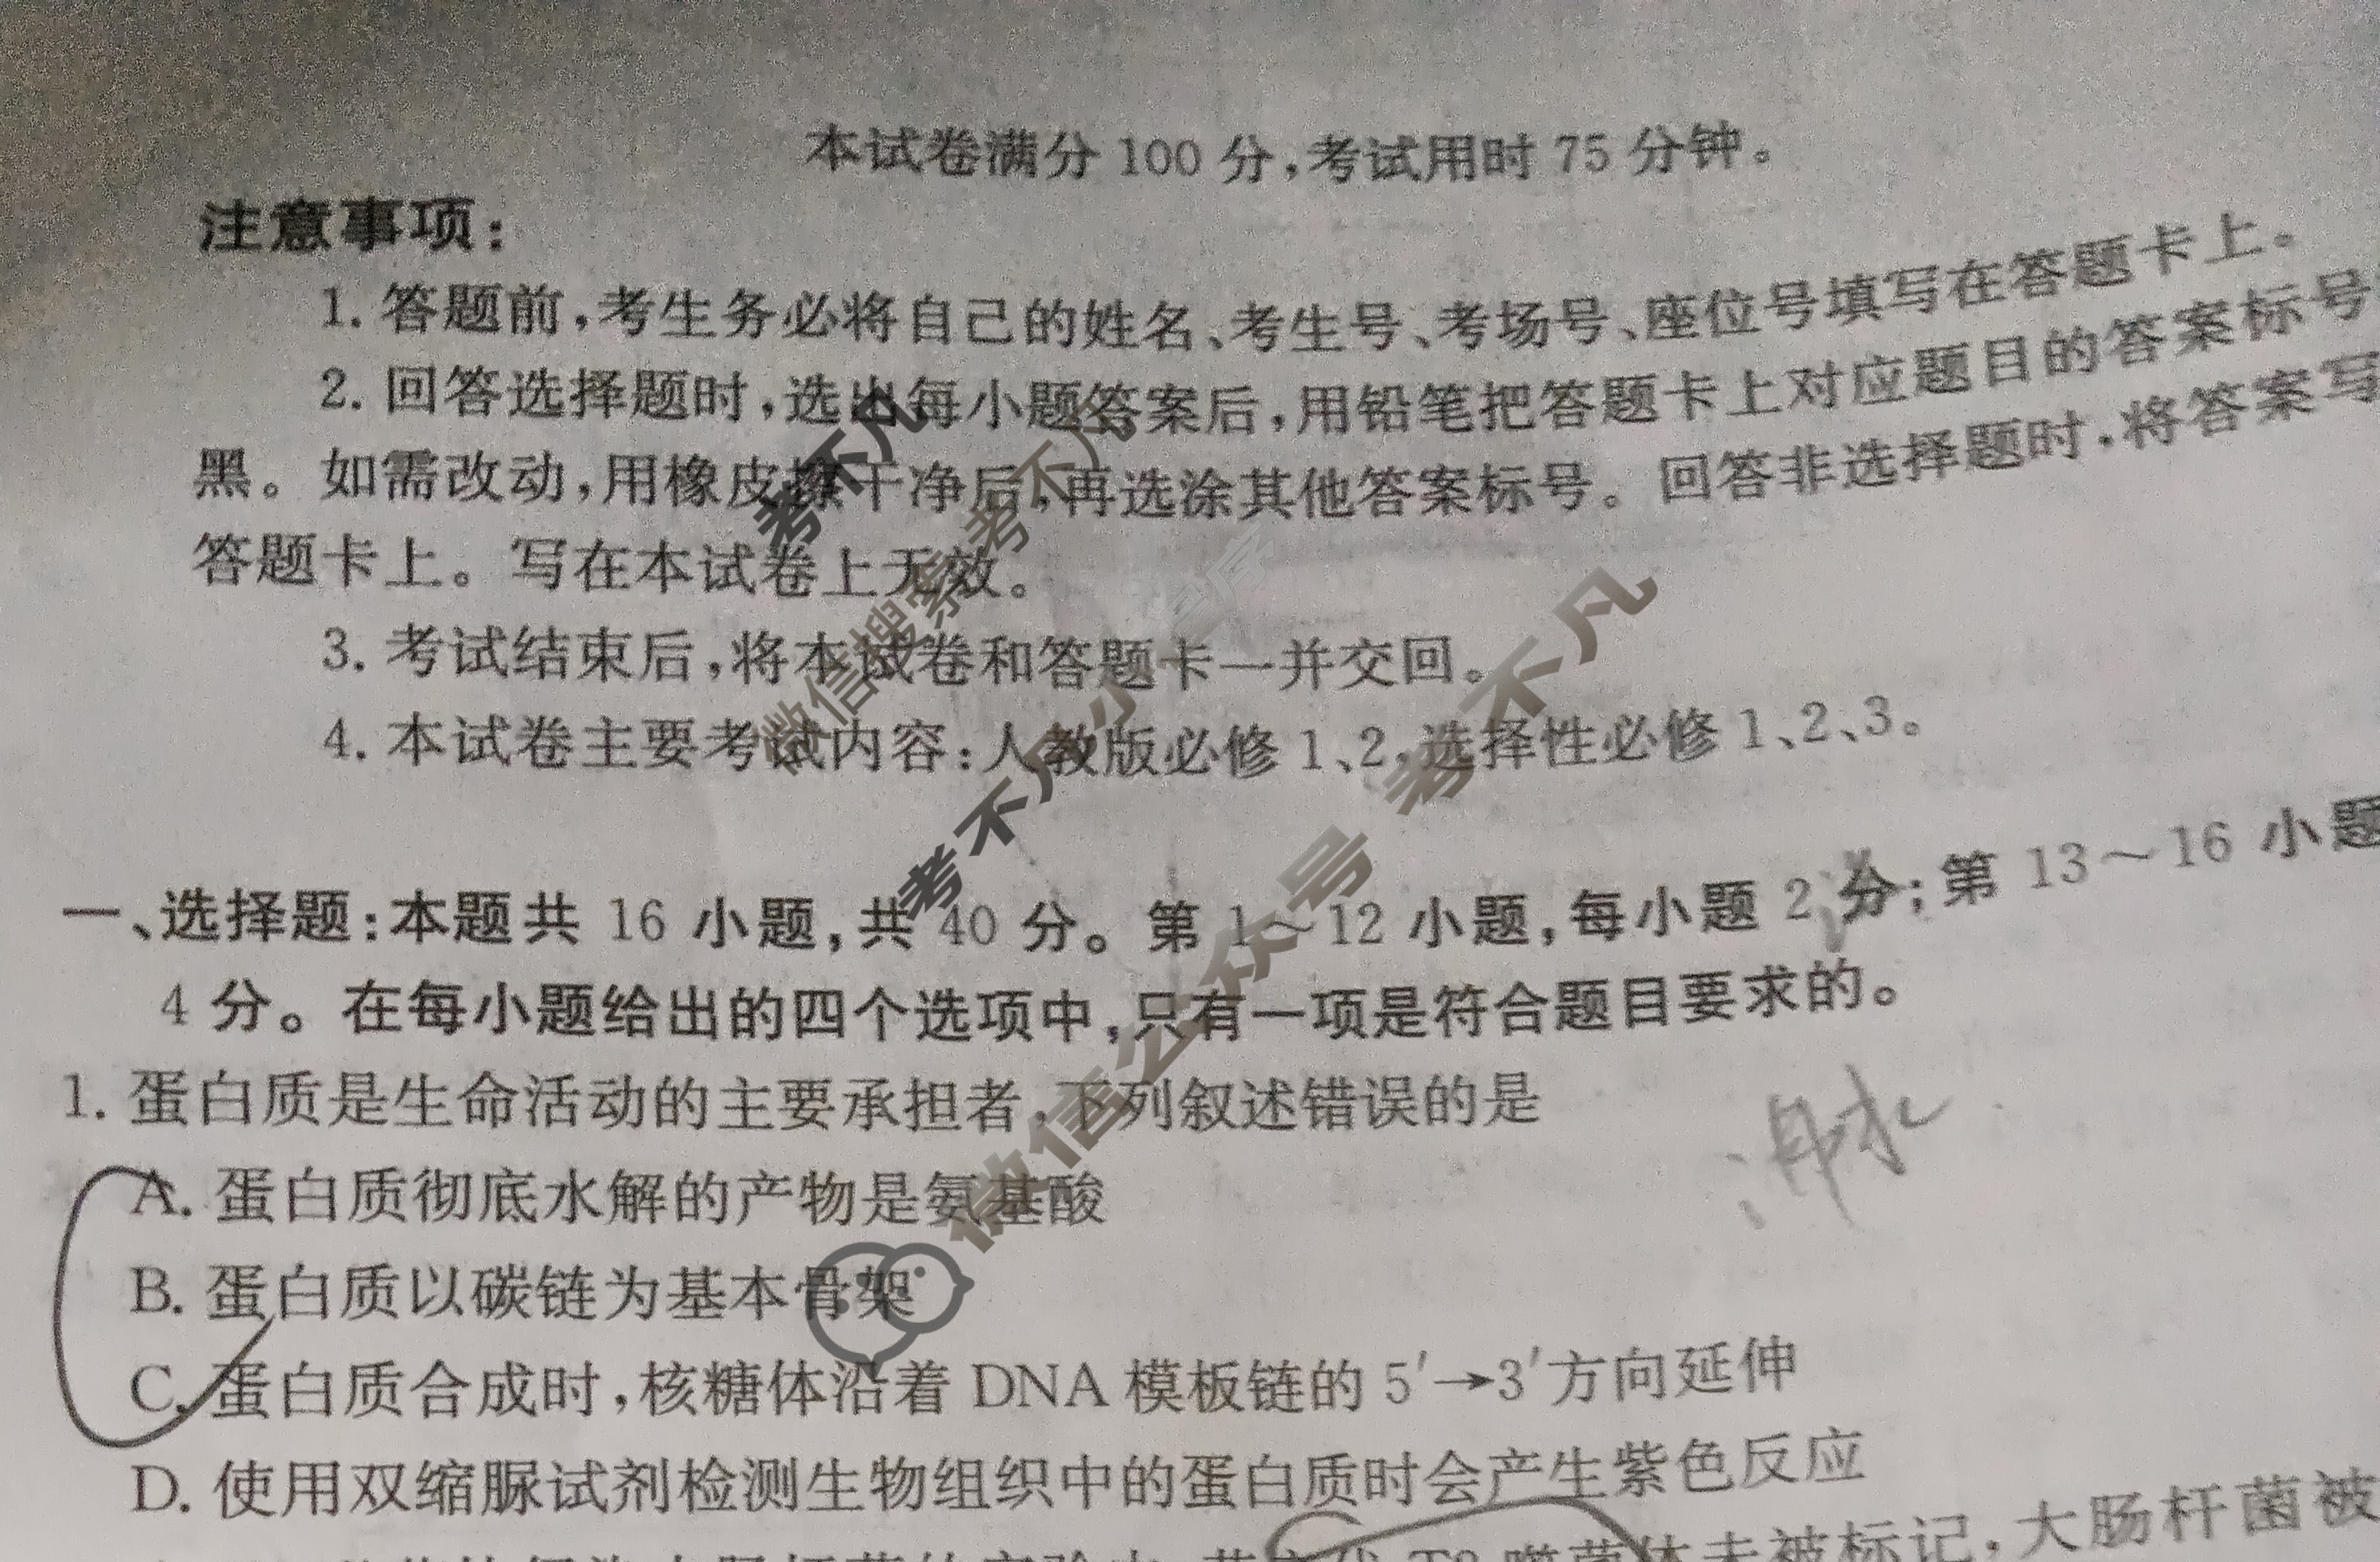 本试卷满分 100 分,考试用时 75 分钟。
注意事项:
1. 答题前,考生务必将自己的姓名、考生号、考场号、座位号填写在答题卡上。
2. 回答选择题时,选出每小题答案后,用铅笔把答题卡上对应题目的答案标号
黑。如需改动,用橡皮擦干净后,再选涂其他答案标号。回答非选择题时,将答案写
答题卡上。写在本试卷上无效。
3. 考试结束后,将本试卷和答题卡一并交回。
4. 本试卷主要考试内容:人教版必修 1、2,选择性必修 1、2、3。
一、选择题:本题共 16 小题,共 40 分。第 1~12 小题,每小题 2 分;第 13~16 小题
4 分。在每小题给出的四个选项中,只有一项是符合题目要求的。
1. 蛋白质是生命活动的主要承担者,下列叙述错误的是
A. 蛋白质彻底水解的产物是氨基酸
B. 蛋白质以碳链为基本骨架
C. 蛋白质合成时,核糖体沿着 DNA 模板链的 5′→3′方向延伸
D. 使用双缩脲试剂检测生物组织中的蛋白质时会产生紫色反应
T2 噬菌体未被标记,大肠杆菌被
考不凡
微信搜索 考不凡
考不凡小程序
微信公众号 考不凡